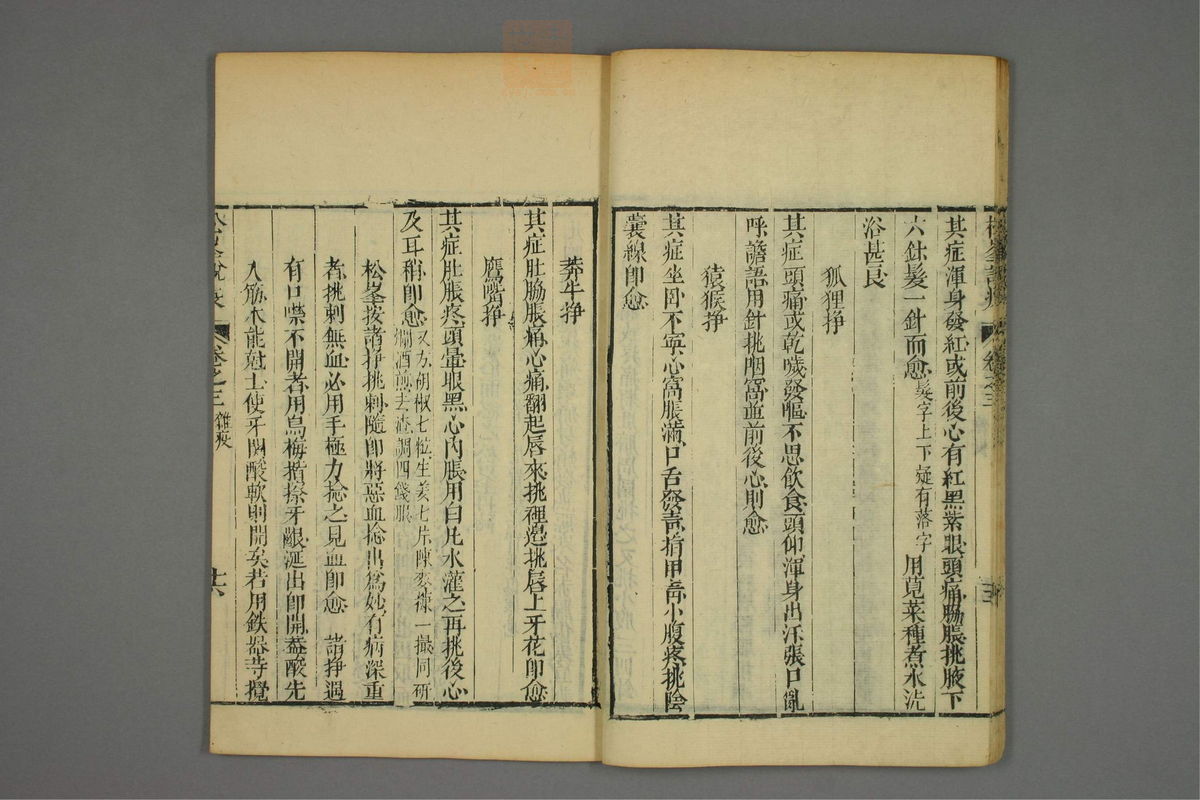 松峯說疫 卷之三
其症渾身發紅或前後心有紅黑紫眼頭痛脇脹挑腋下
六針髮一針而愈髮字上下疑有落字用莧菜種煮水洗
浴甚良
狐狸挣
其症頭痛或乾噦發嘔不思飲食頭仰渾身出汗張口亂
呼譫語用針挑咽窩並前後心則愈
猿猴挣
其症坐卧不寧心窩脹滿口舌發青指甲青小腹疼挑陰
囊線卽愈
莽牛挣
其症肚脇脹痛心痛翻起唇來挑裡邊挑唇上牙花卽愈
鷹嘴挣
其症肚脹疼頭暈眼黑心內脹用白凡水灌之再挑後心
及耳稍卽愈又方胡椒七粒生姜七片陳麥 一撮同研
爛酒煎去渣調四錢服
松峯按諸挣挑刺隨卽將惡血捻出爲妙有病深重
者挑刺無血必用手極力捻之見血卽愈 諸挣遇
有口噤不開者用烏梅揩擦牙齦涎出卽開蓋酸先
入筋木能尅土使牙関酸軟則開矣若用鉄器等攪
松峯說疫 卷之三 雜疫 十六